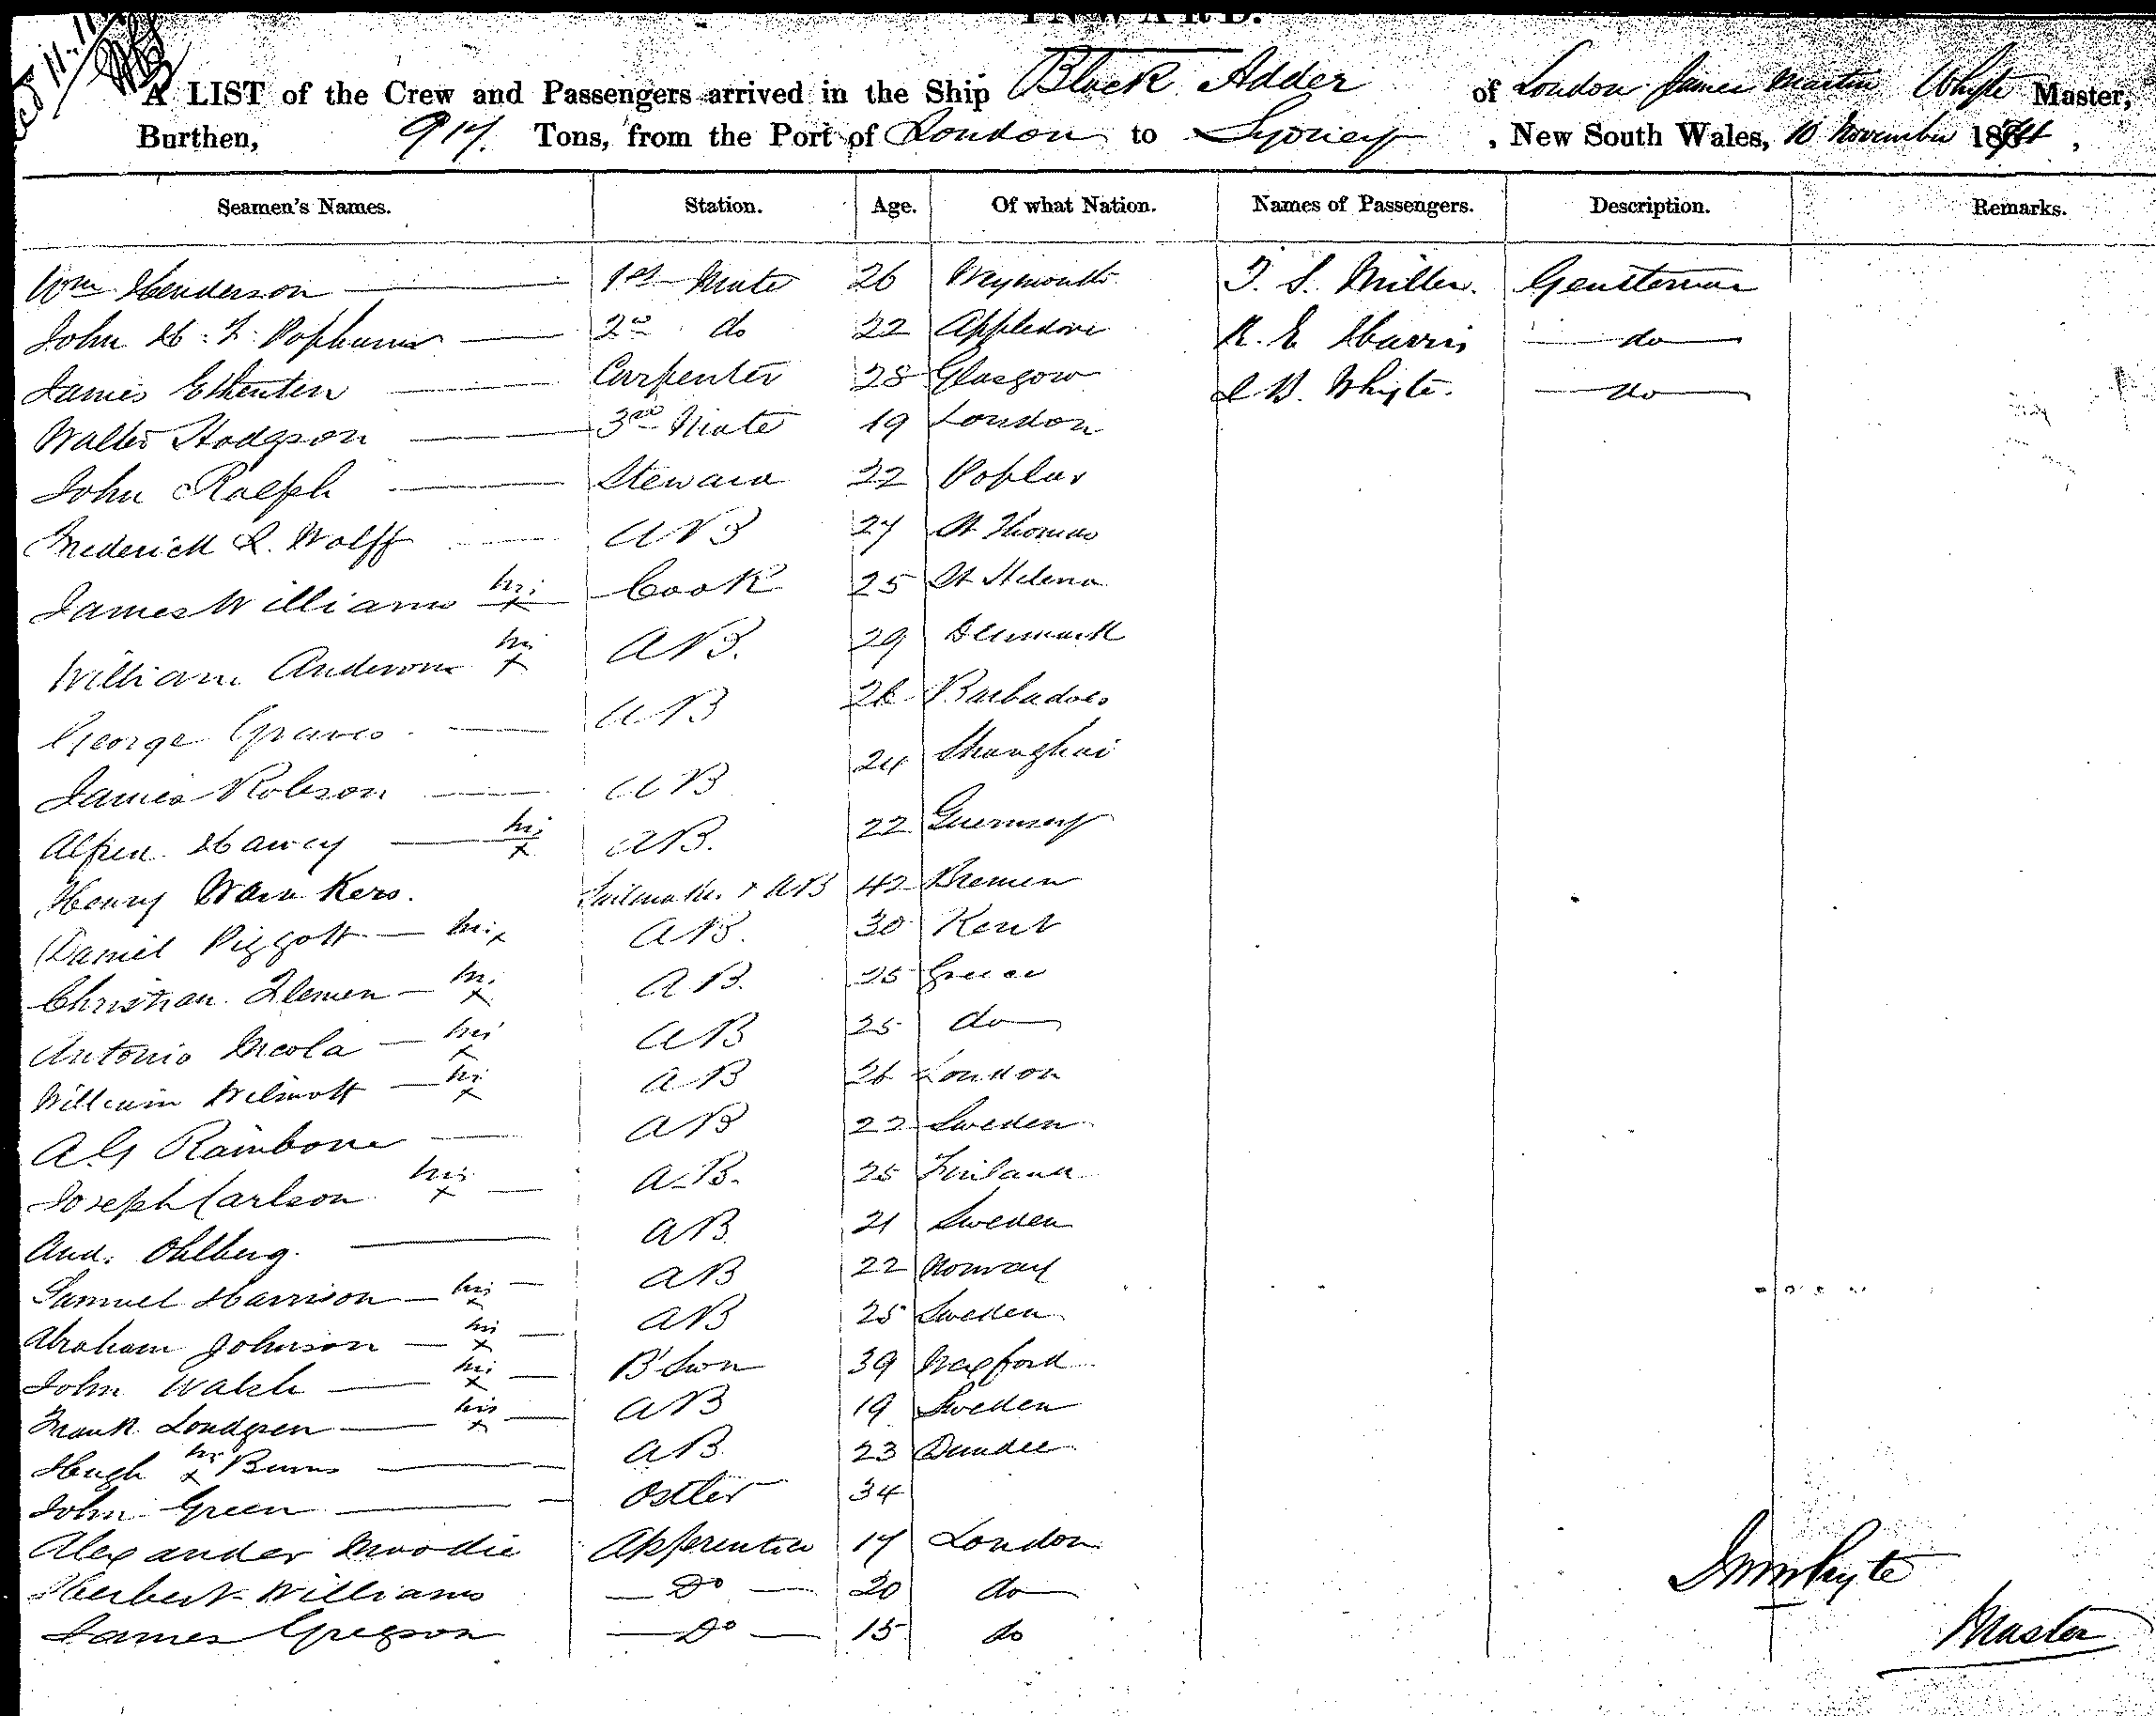 INWARD.
A LIST of the Crew and Passengers arrived in the Ship Black Adder of London James Martin Whyte Master,
Burthen, 917. Tons, from the Port of London to Sydney, New South Wales, 10 November 187
Seamen's Names. Station. Age. Of what Nation. Names of Passengers. Description. Remarks.
Wm Henderson 1st Mate 26 Weymouth T. S. Miller. Gentleman
John H. F. Popham 2nd do 22 Appledore R. E Harris do
James Carpenter 28 Glasgow B. Whyte. do
Walter Hodgson 3rd Mate 19 London
John Ralph Steward 22 Poplar
Frederick L. Wolff AB 27 St Thomas
James Williams his x Cook 25 St Helena
William Anderson his x AB. 29 Denmark
George Graves AB 26 Barbadoes
James Robson AB 24 Shanghai
Alfred his x AB. 22 Guernsey
Henry Sailmaker & AB 42 Bremen
Daniel Piggott his x AB. 30 Kent
Christian his x AB. 25 Greece
Antonio Nicola his x AB 25 do
William Wilmott his x AB 26 London
A G AB 22 Sweden
Joseph Carlson his x A.B. 25 Finland
And. Ohlberg. AB 21 Sweden
Samuel Harrison his x AB 22 Norway
Abraham Johnson his x AB 25 Sweden
John Walsh his x B'Swn 39 Wexford
Frank Londgren his x AB 19 Sweden
Hugh his x Burns AB 23 Dundee
John Green Ostler 34
Alexander Moodie Apprentice 17 London
Herbert Williams Do 20 do
James Gregson Do 15 do
JMWhyte
Master